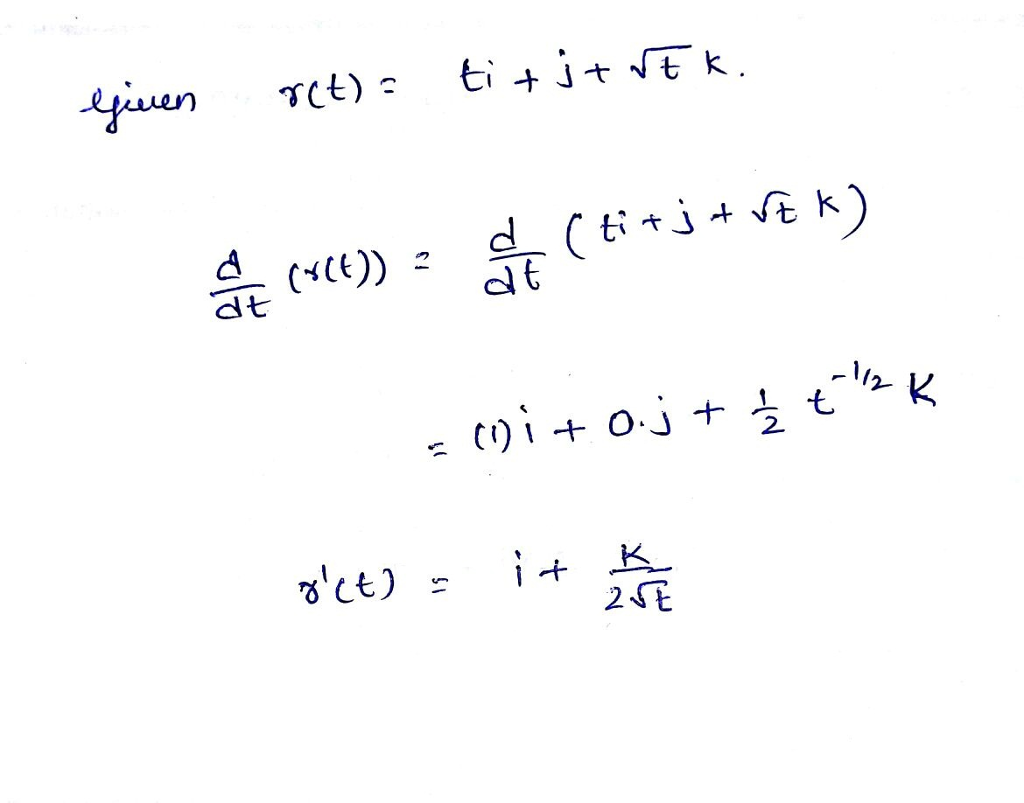 Given r(t) = ti + j + √t k.
d/dt (r(t)) = d/dt (ti + j + √t k)
= (1)i + 0.j + 1/2 t^-1/2 k
r'(t) = i + k/2√t